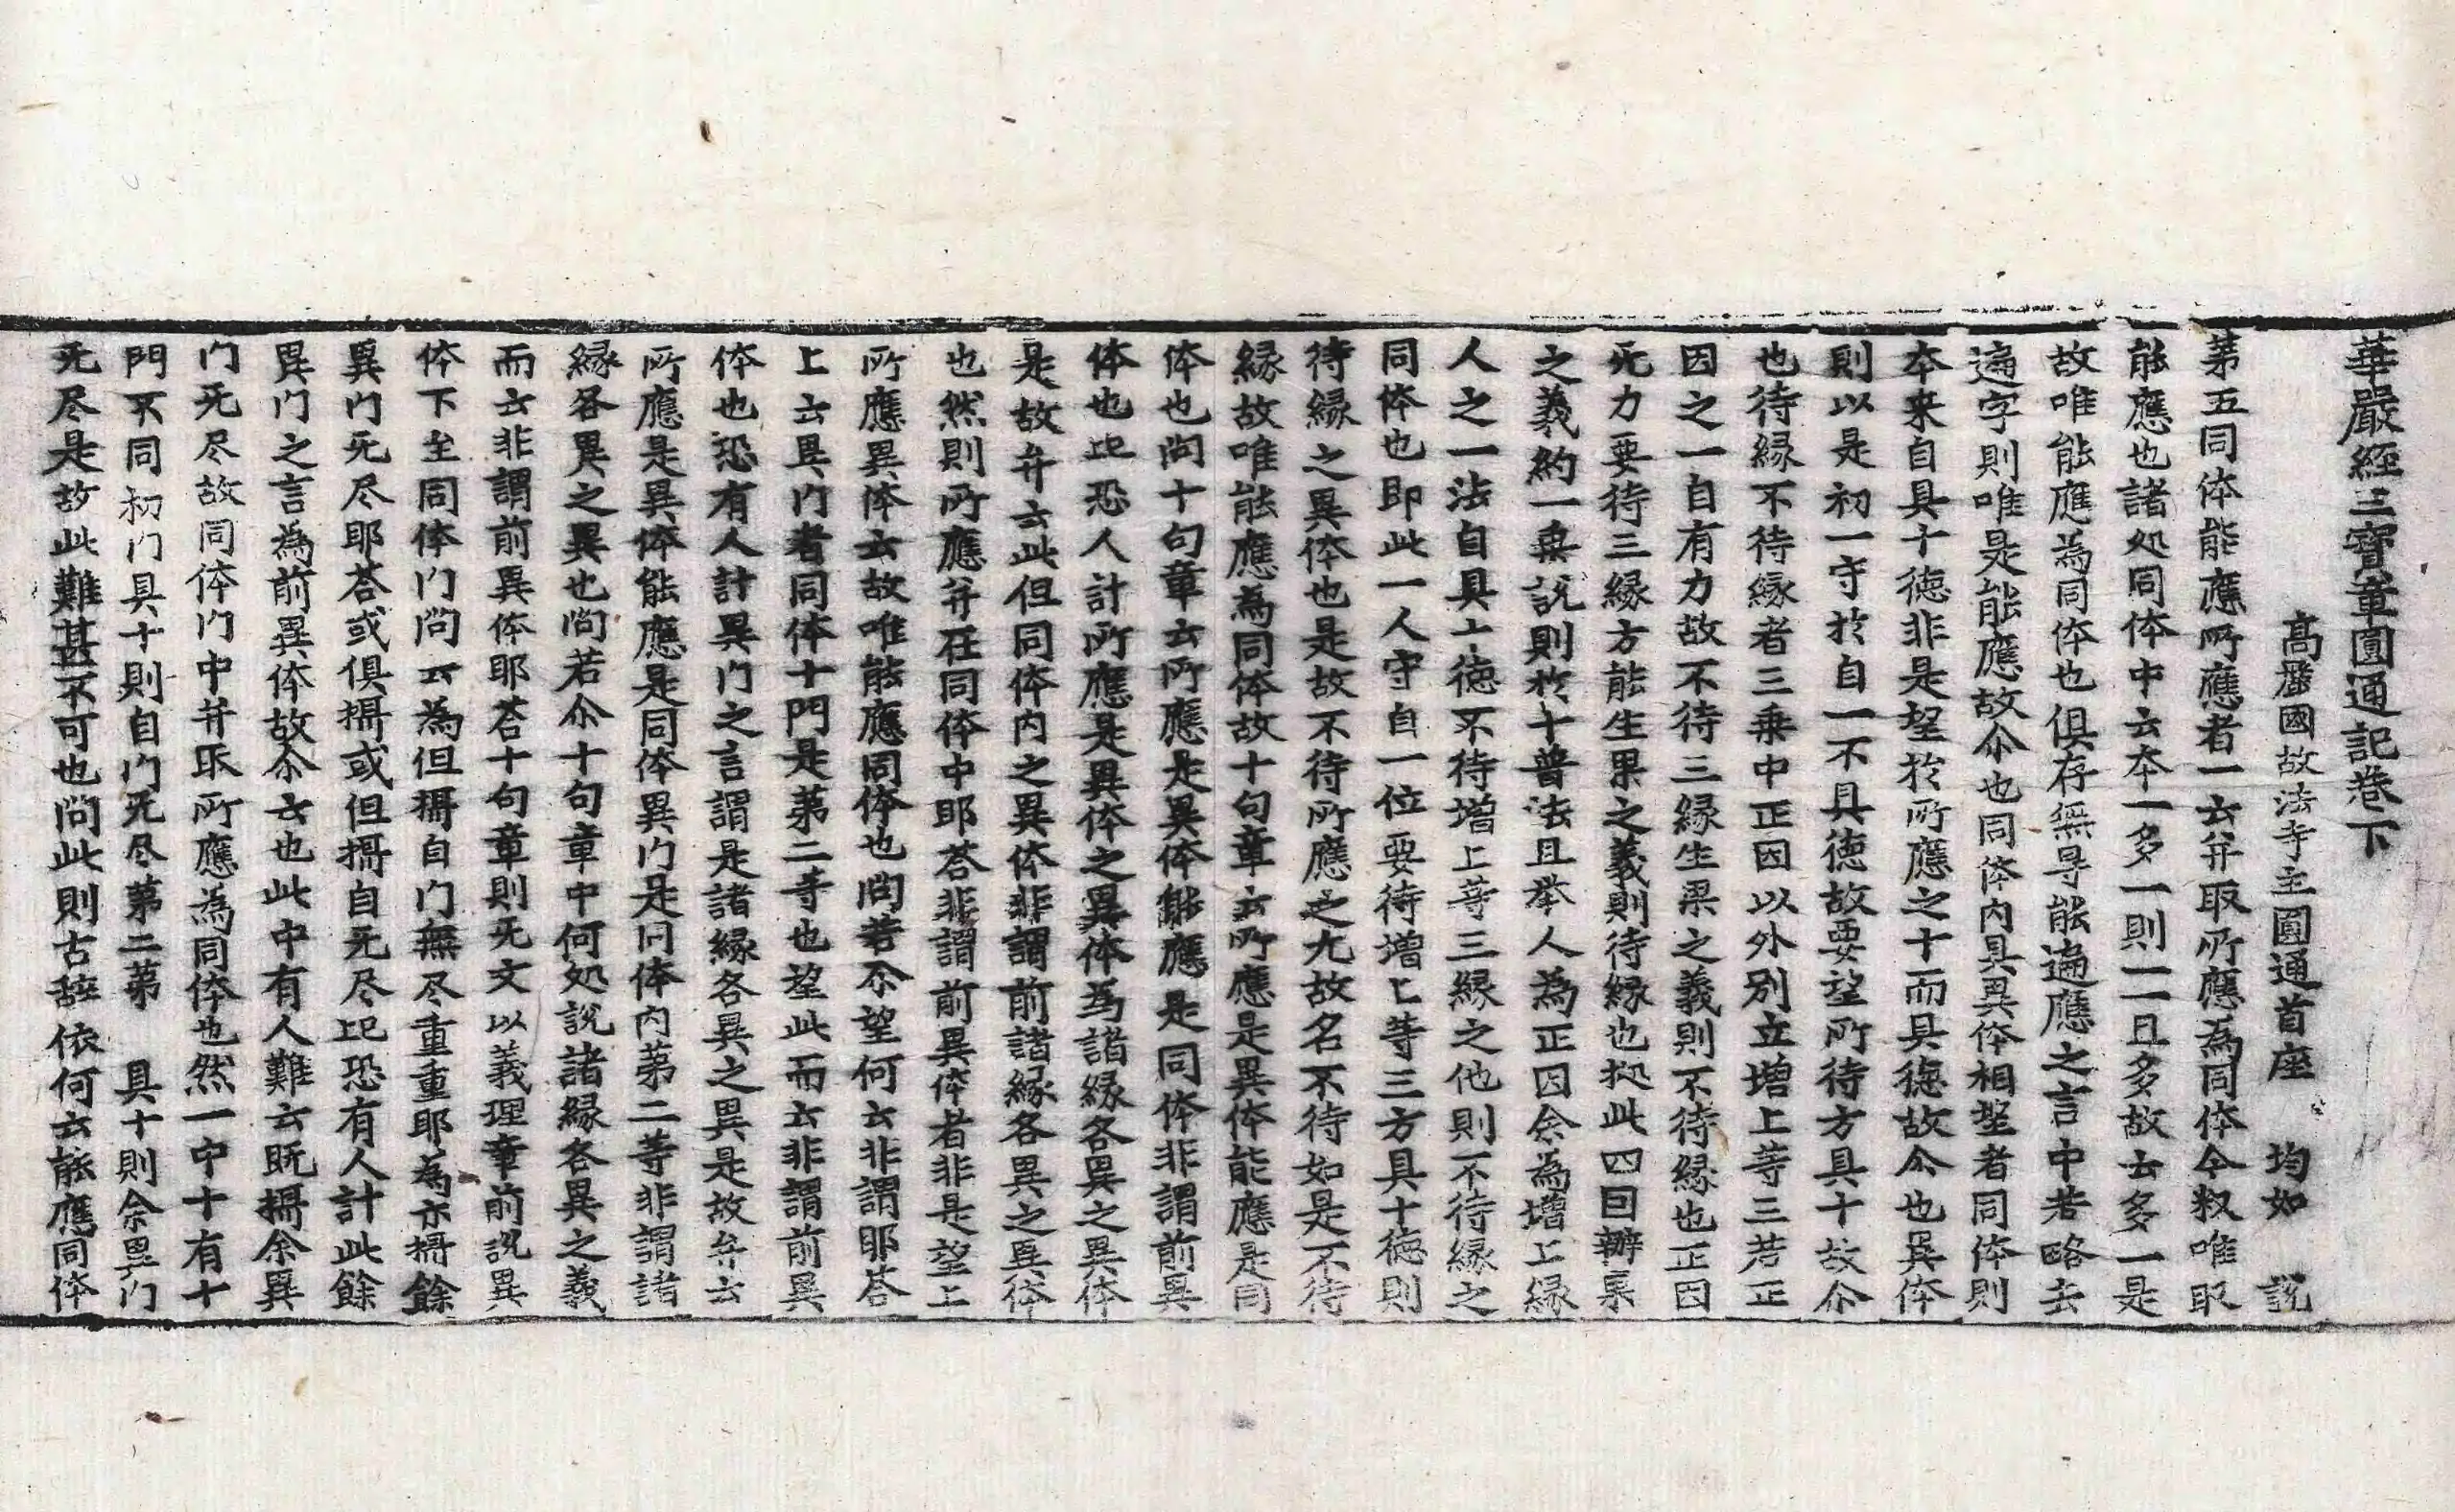 華嚴經三寶章圓通記卷下
高麗國故法寺主圓通首座 均如 說
第五同体能應所應者一云并取所應為同体今釈唯取
能應也諸処同体中云本一多一則一一且多故云多一是
故唯能應為同体也俱存無㝵能遍應之言中若略去
遍字則唯是能應故尒也同体內具異体相望者同体則
本来自具十德非是望於所應之十而具德故尒也異体
則以是初一守於自一不具徳故要望所待方具十故尒
也待縁不待縁者三乗中正因以外別立増上等三若正
因之一自有力故不待三縁生果之義則不待縁也正因
无力要待三縁方能生果之義則待縁也抝此四囙辦果
之義約一乗說則於十普法且举人為正因余為増上縁
人之一法自具十徳不待增上等三縁之他則不待縁之
同体也即此一人守自一位要待増上等三方具十徳則
待縁之異体也是故不待所應之九故名不待如是不待
縁故唯能應為同体故十句章云所應是異体能應是同
体也問十句章云所應是異体能應是同体非謂前異
体也此恐人計所應是異体之異体為諸緣各異之異体
是故弁云此但同体內之異体非謂前諸緣各異之異体
也然則所應并在同体中耶荅非謂前異体者非是望上
所應異体云故唯能應同体也問若尒望何云非謂耶荅
上云異门者同体十門是第二等也望此而云非謂前異
体也恐有人計異门之言謂是諸緣各異之異是故弁云
所應是異体能應是同体異门是同体內第二等非謂諸
緣各異之異也問若尒十句章中何処說諸緣各異之義
而云非謂前異体耶荅十句章則无文以義理章前說異
体下至同体门問云為但攝自门無尽重重耶為亦攝餘
異门无尽耶荅或俱攝或但攝自无尽此恐有人計此餘
異门之言為前異体故尒云也此中有人難云既攝余異
门无尽故同体门中并取所應為同体也然一中十有十
門不同初门具十則自门无尽第二第 具十則余異门
无尽是故此難甚不可也問此則古辞依何云能應同体